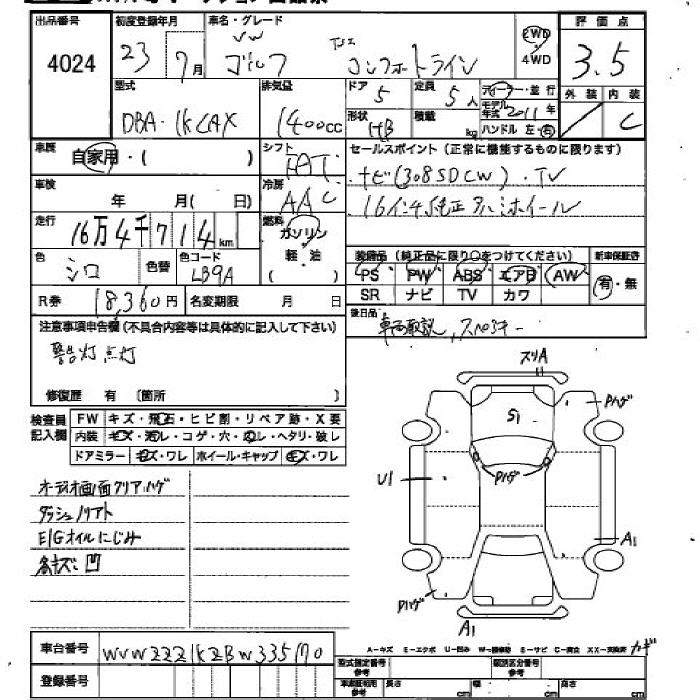 出品番号
4024
初度登録年月
23年7月
車名・グレード
VW
ゴルフ TSI コンフォートライン
2WD
4WD
評価点
3.5
外装 内装
C
型式
DBA-1KCAX
排気量
1400cc
ドア
5
定員
5人
形状
HB
積載
kg
ディーラー・並行
モデル年式 2011年
ハンドル 左・右
車歴
自家用・( )
シフト
FAT
冷房
AAC
セールスポイント (正常に機能するものに限ります)
ナビ(308SDCW)・TV
16インチ純正アルミホイール
車検
年 月( 日)
走行
16万4千714km
燃料
ガソリン
軽・油
( )
色
シロ
色替
色コード
LB9A
装備品 (純正品に限り○をつけてください)
PS PW ABS エアB AW
SR ナビ TV カワ
新車保証書
有・無
R券
18,360円
名変期限 月 日
後日品
車両取説、スペアキー
注意事項申告欄 (不具合内容等は具体的に記入して下さい)
警告灯点灯
修復歴 有 〔箇所 〕
検査員記入欄
FW キズ・飛石・ヒビ割・リペア跡・X要
内装 キズ・汚レ・コゲ・穴・スレ・ヘタリ・破レ
ドアミラー キズ・ワレ ホイール・キャップ キズ・ワレ
オーディオ画面クリアハゲ
ダッシュソリアト
E/Gオイルにじみ
各キズ凹
スリA
Pハゲ
S1
Pハゲ
U1
A1
Pハゲ
A1
車台番号
WVWZZZ1KZBW335170
登録番号
A-キズ E-エクボ U-凹み W-補修跡 S-サビ C-腐食 XX-交換済
型式指定番号 参考
類別区分番号 参考
車庫証明用 参考
長さ cm
幅 cm
高さ cm